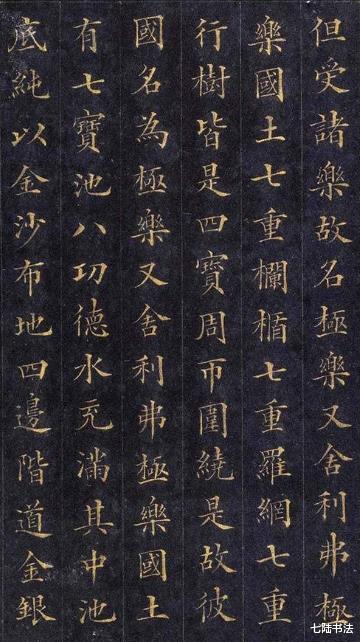 但受諸樂故名極樂又舍利弗極
樂國土七重欄楯七重羅網七重
行樹皆是四寶周帀圍繞是故彼
國名為極樂又舍利弗極樂國土
有七寶池八功德水充滿其中池
底純以金沙布地四邊階道金銀
七陆书法